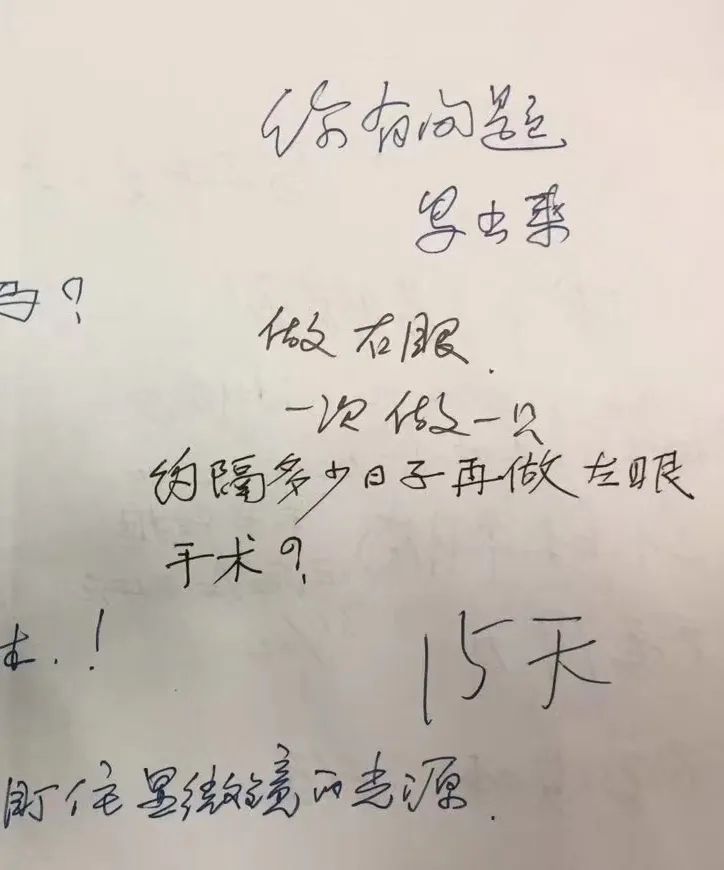 你有问题
写出来
吗？
做右眼.
一次做一只
约隔多少日子再做左眼
手术？
术.！
15天
盯住显微镜的光源.